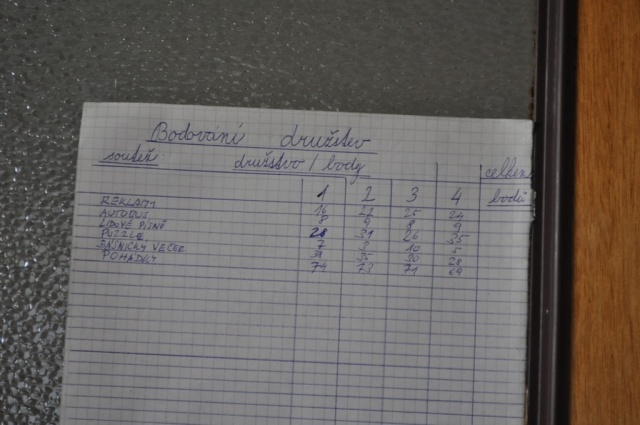 Bodovaní družstev
soutěž družstvo / body celkem
1 2 3 4 bodů
REKLAMY 16 22 25 24
AUTOBUS 8 9 8 9
LIDOVÉ PÍSNĚ 28 31 26 35
PUZZLE 7 10 5
BÁSNICKÝ VEČER 35 30 28
POHÁDKY 74 73 71 69